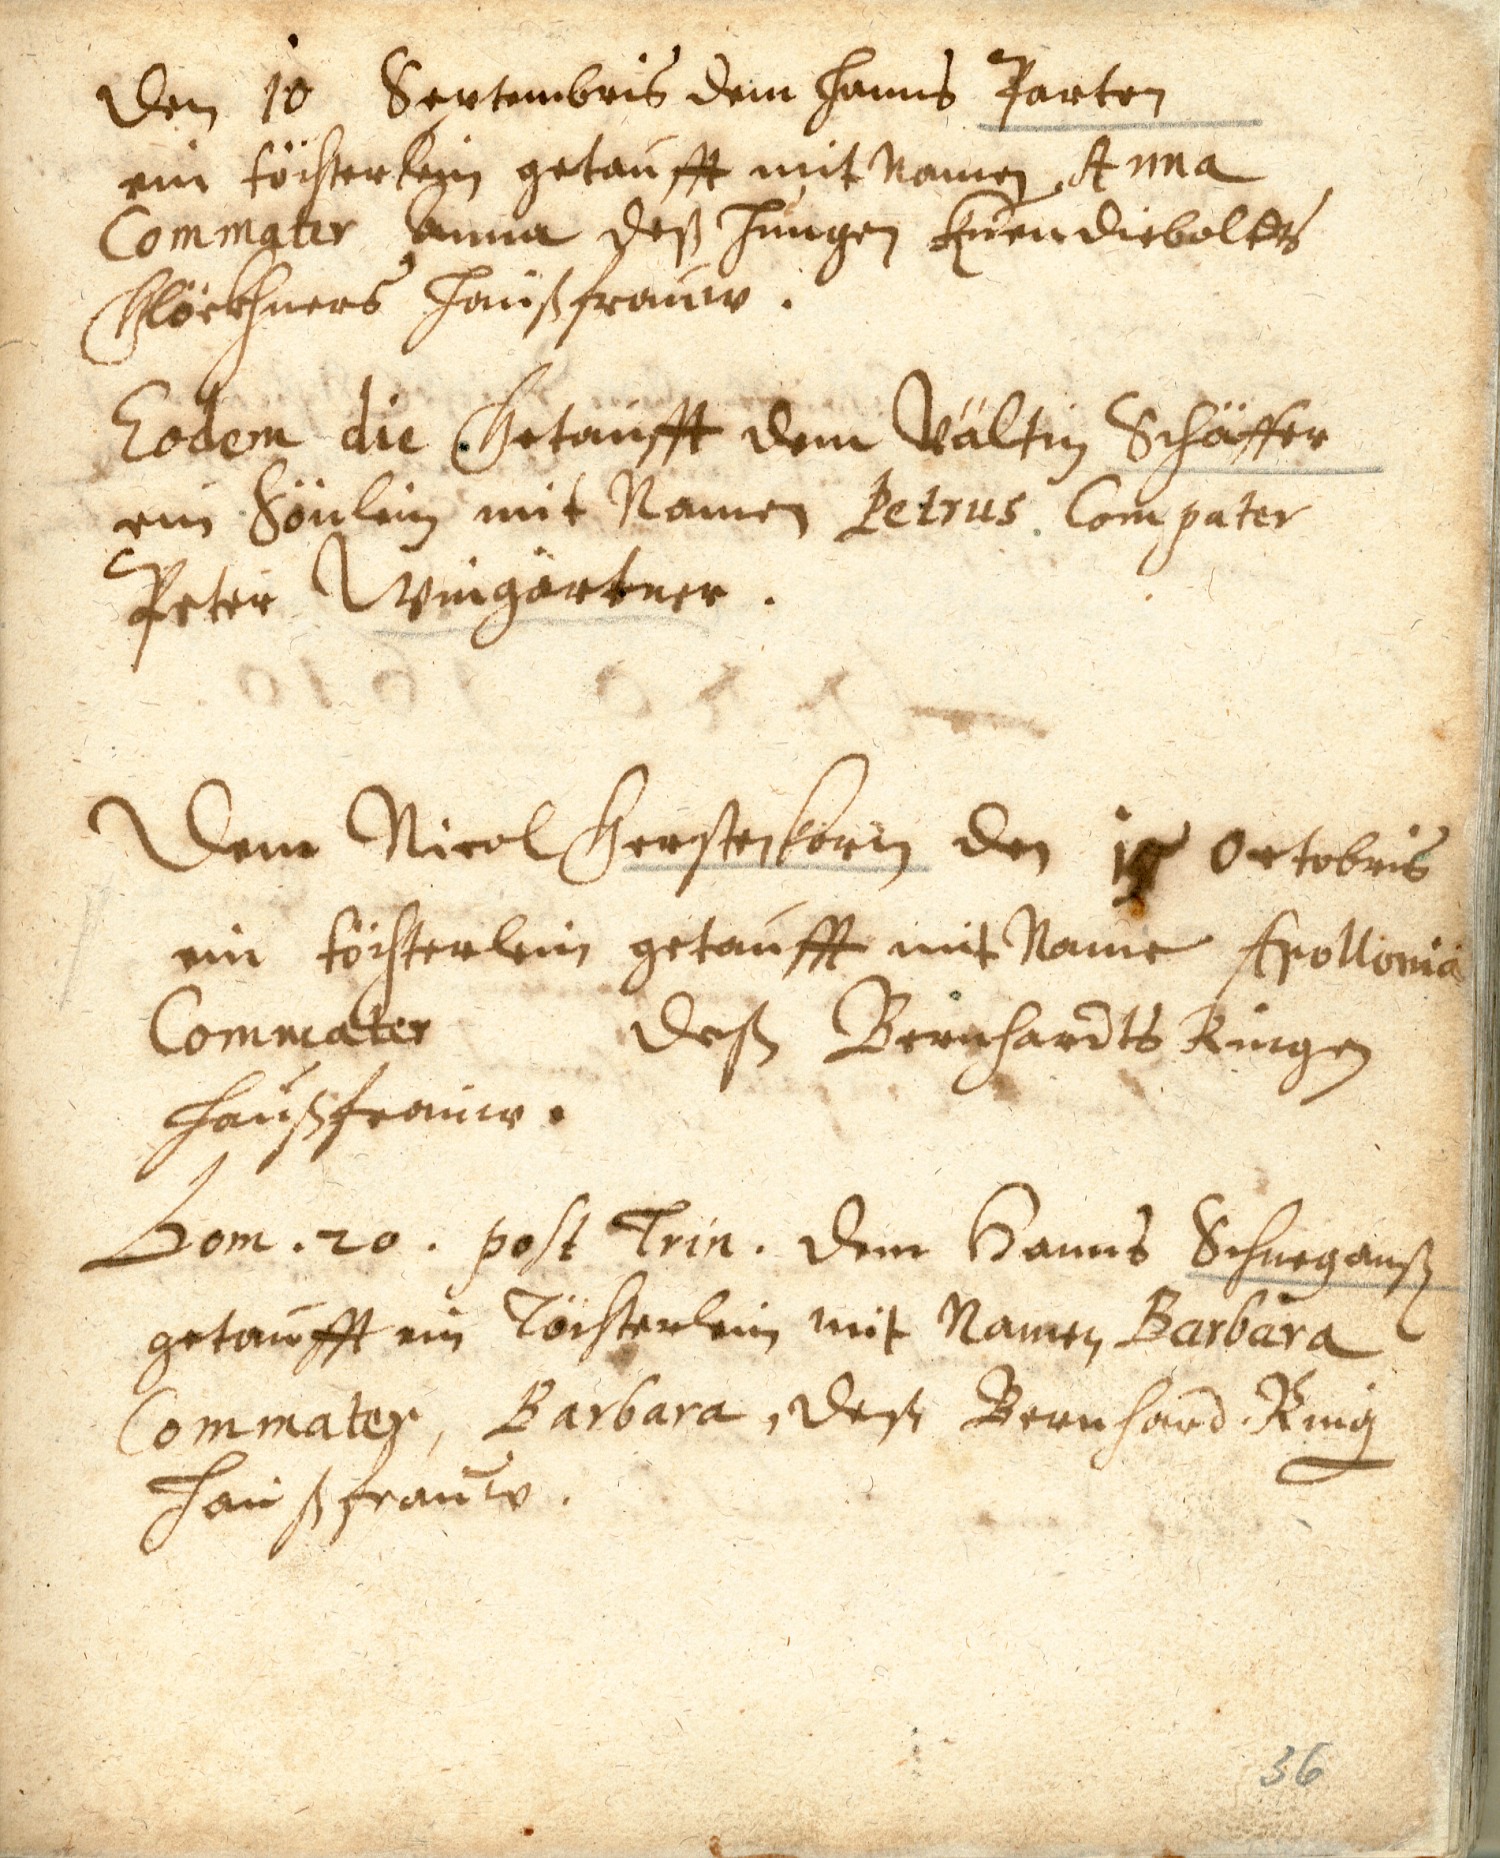 Den 10 Septembris dem Hanns Parten
ein töchterlein getaufft mit Namen Anna
Commater Anna deß Jungen Kuendieboldts
Glöckhners Haußfrauw.
Eodem die Getaufft dem Vältin Schäffer
ein Sönlein mit Namen Petrus. Compater
Peter Wingärtner.
Dem Nicol Gerstenkorn den Octobris
ein töchterlein getaufft mit Name Apollonia
Commater deß Bernhardts Ringen
Haußfrauw.
Dom. 20. post Trin. dem Hanns Schneganß
getaufft ein Töchterlein mit Namen Barbara
Commater, Barbara, deß Bernhard Ring
Haußfrauw.
36